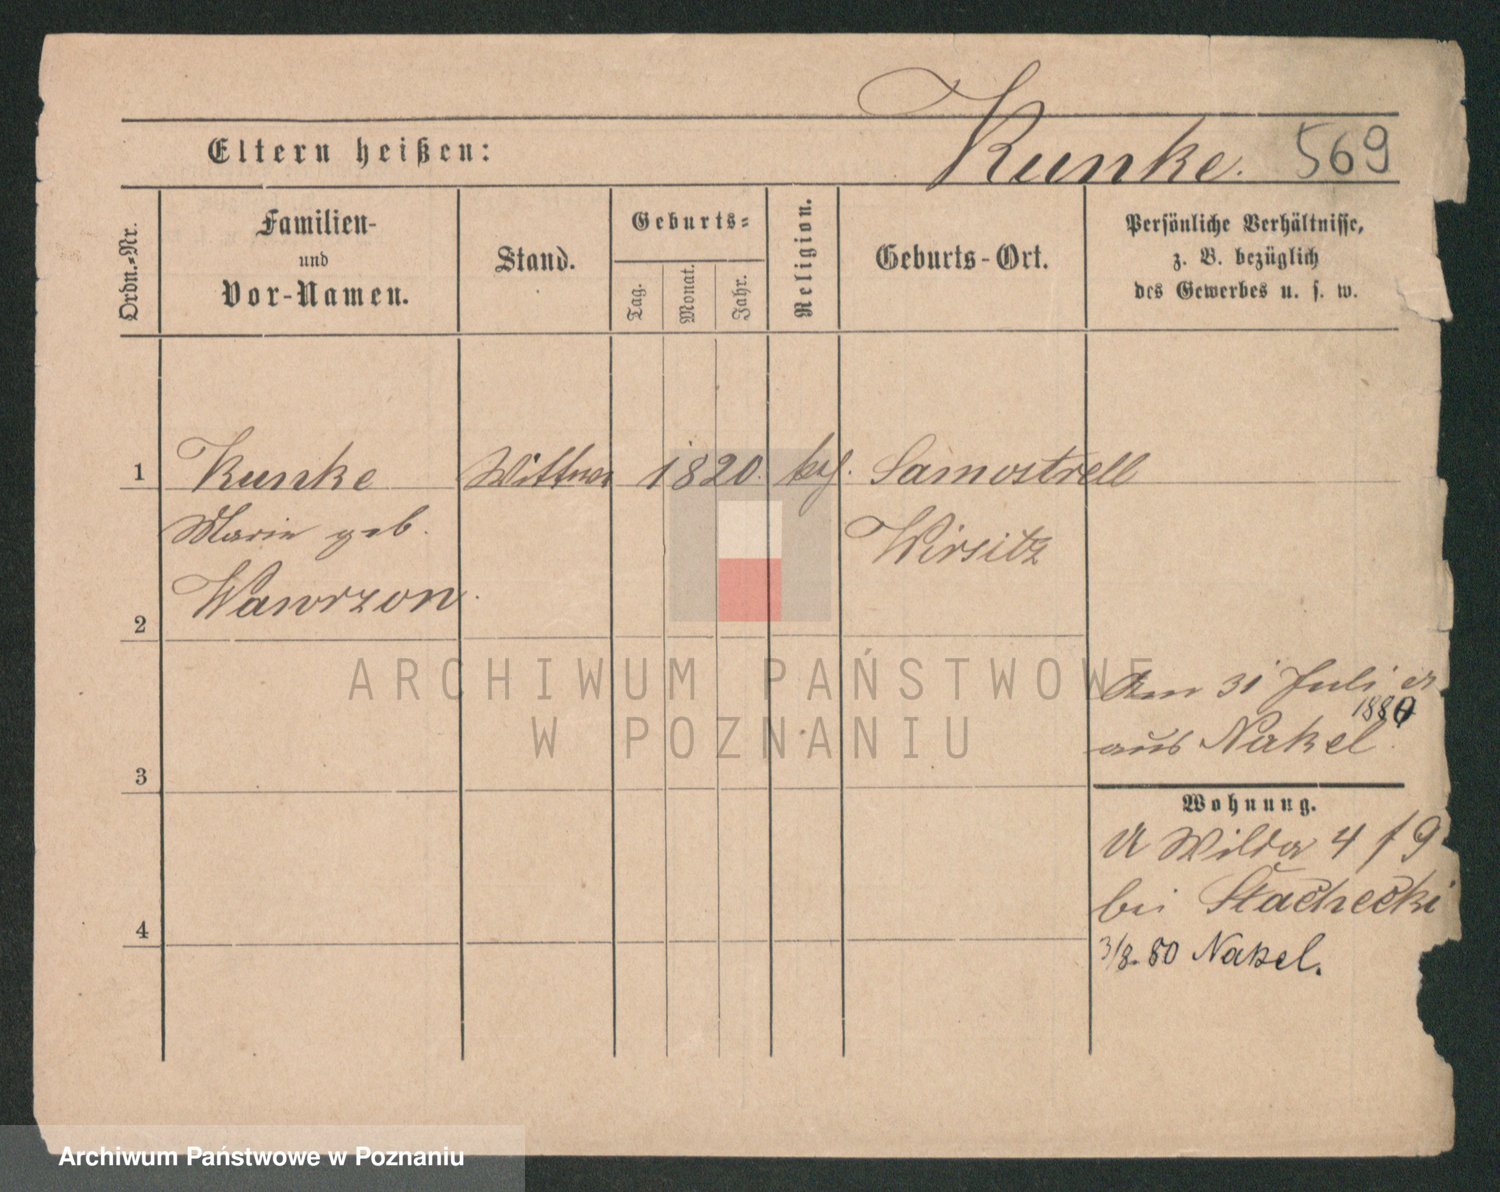 Kunke. 569
Eltern heißen:
Ordn.-Nr.
Familien-
und
Vor-Namen.
Stand.
Geburts-
Tag.
Monat.
Jahr.
Religion.
Geburts-Ort.
Persönliche Verhältnisse,
z. B. bezüglich
des Gewerbes u. s. w.
1 Kunke Wittwe 1820. Samostrell
Marie geb. Wirsitz
Wawrzon.
2
Am 31 Juli
1880
aus Nakel.
3
Wohnung.
Wilda 4 / 9
bei Stachecki
4
3/8. 80 Nakel.
ARCHIWUM PAŃSTWOWE
W POZNANIU
Archiwum Państwowe w Poznaniu